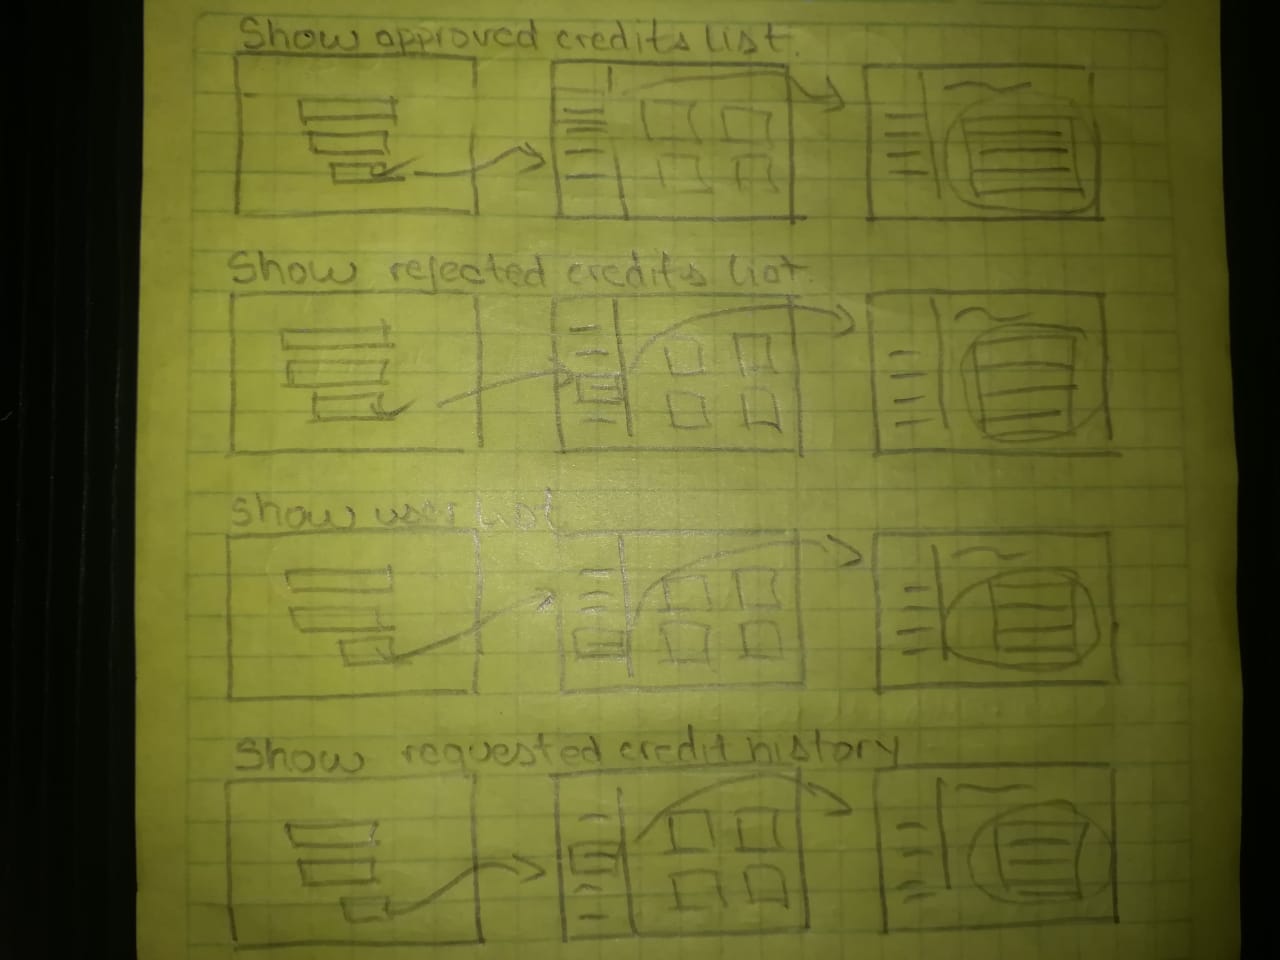 Show approved credits list.
Show rejected credits list.
Show user list
Show requested credit history